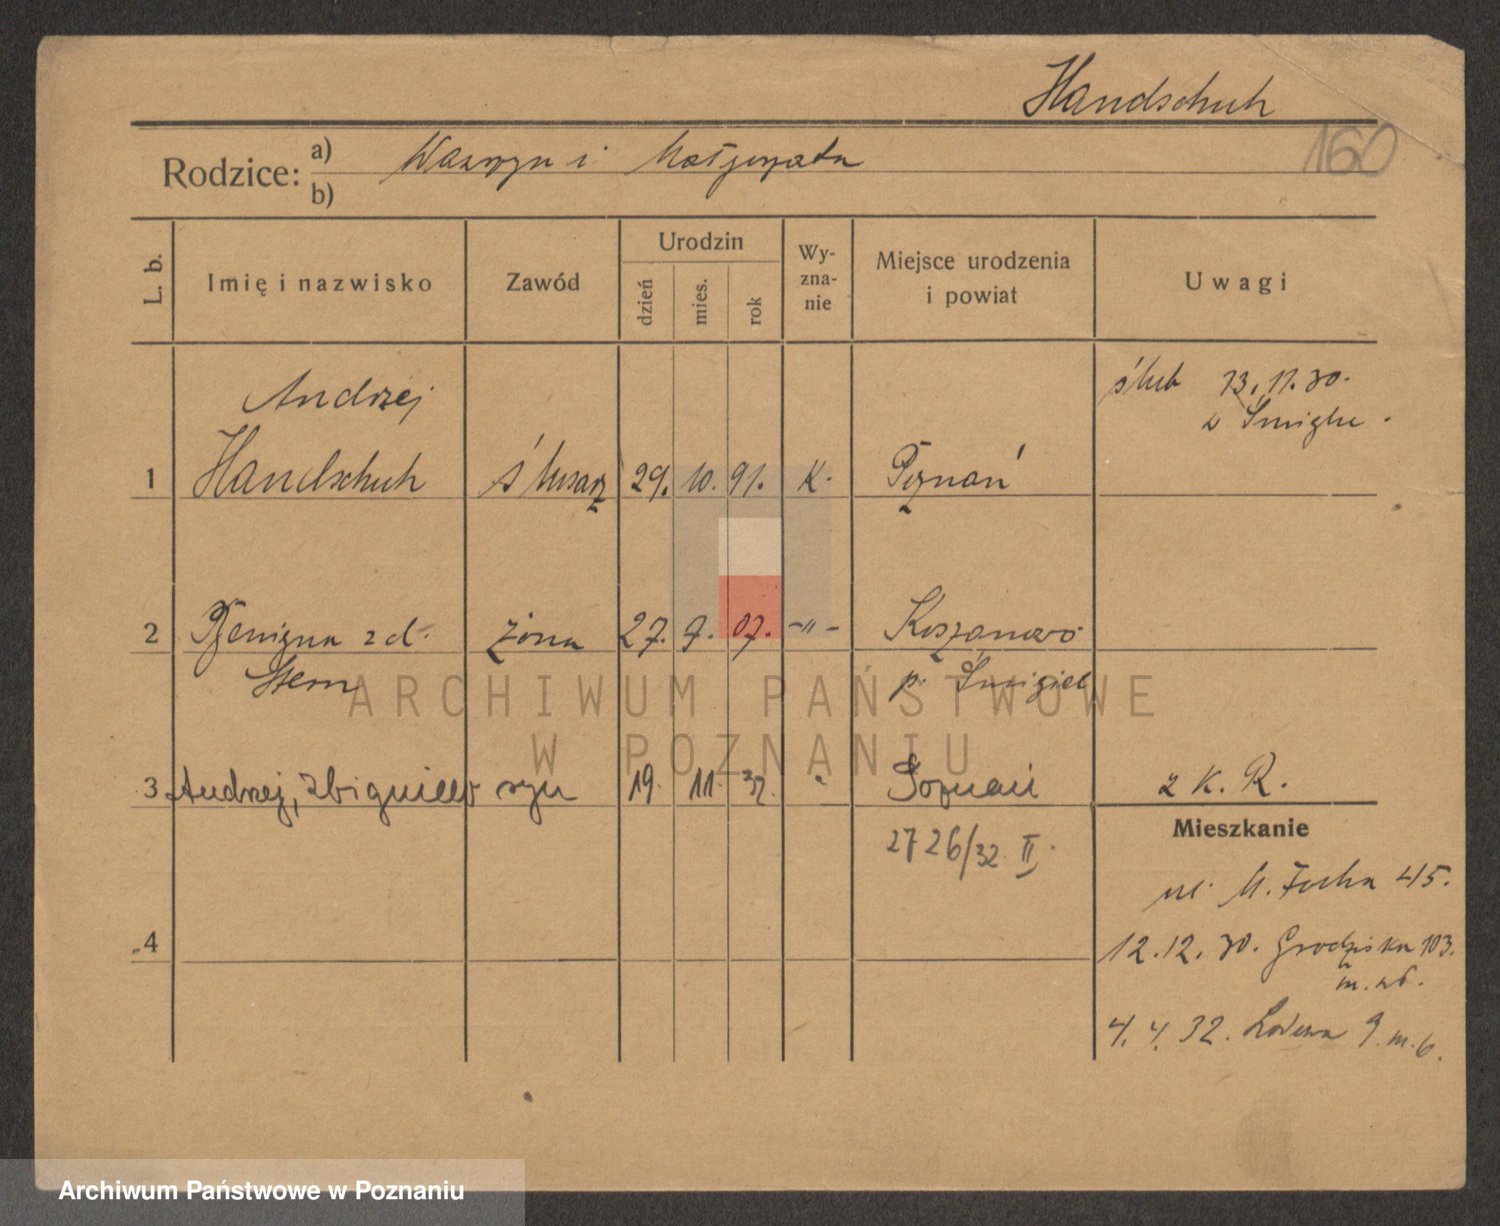 Handschuh
160
Rodzice: a) Wawrzyn i Małgorzata
b)
L. b. Imię i nazwisko Zawód Urodzin dzień mies. rok Wy-zna-nie Miejsce urodzenia i powiat Uwagi
ślub 13.11.30.
w Śmiglu.
Andrzej
1 Handschuh ślusarz 29. 10. 91. K. Poznań
2 Benigna z d. żona 27. 9. 07. -"- Koszanowo
Stern p. Śmigiel
3 Andrzej, Zbigniew syn 19. 11. 32. " Poznań z K. R.
2726/32 II.
Mieszkanie
ul. M. Focha 45.
4
12.12.30. Grodziska 103.
4.4.32. 9 m. 6.
ARCHIWUM PAŃSTWOWE
W POZNANIU
Archiwum Państwowe w Poznaniu